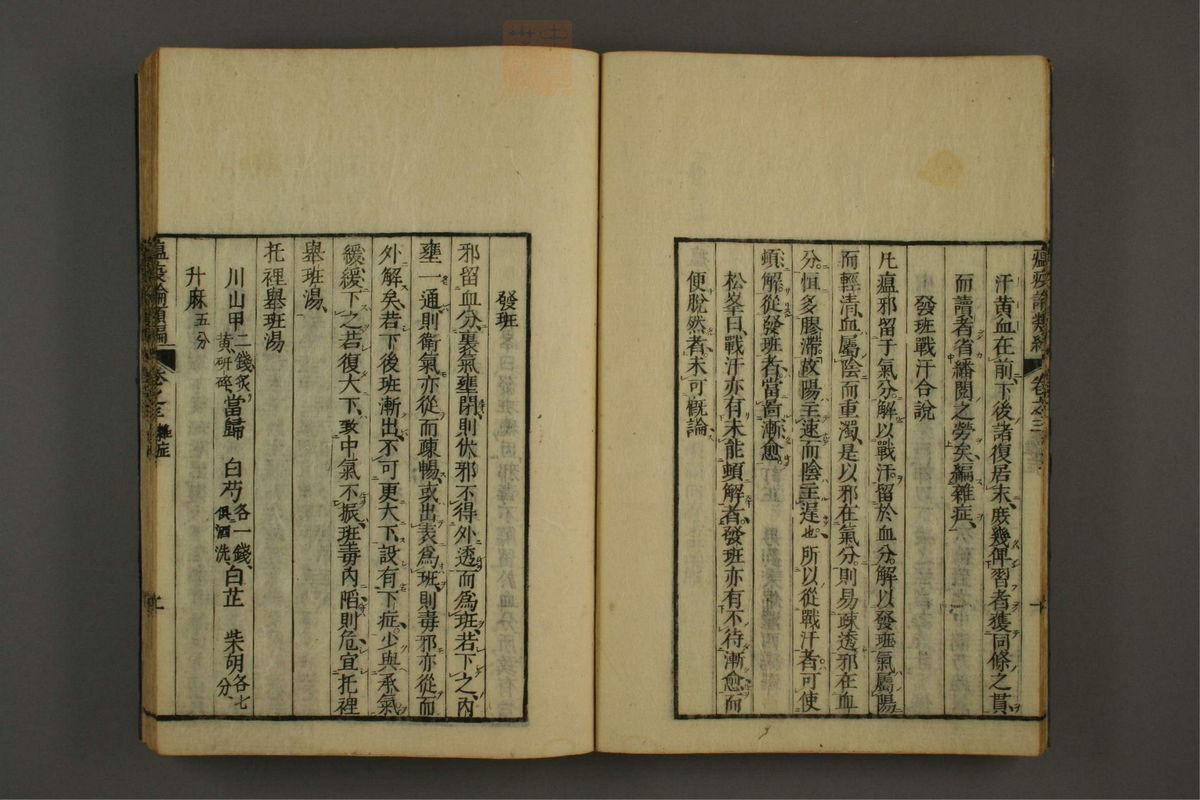 汗黄血在前下後諸復居末庻幾俾習者獲同條之貫
而讀者省繙閱之勞矣編雜症
發班戰汗合說
凡瘟邪留于氣分解以戰汗留於血分解以發班氣屬陽
而輕清血屬陰而重濁是以邪在氣分則易疎透邪在血
分恒多膠滯故陽主速而陰主遲也所以從戰汗者可使
頓解從發班者當圖漸愈
松峯曰戰汗亦有未能頓解者發班亦有不待漸愈而
便脫然者未可慨論
瘟疫論類編 卷之三 十
發班
邪留血分裹氣壅閉則伏邪不得外透而爲班若下之內
壅一通則衛氣亦從而疎暢或出表爲班則毒邪亦從而
外解矣若下後班漸出不可更大下設有下症少與承氣
緩緩下之若復大下致中氣不振班毒內陷則危宜托裡
舉班湯
托裡舉班湯
川山甲二錢炙黄研碎 當歸 白芍各一錢俱酒洗 白芷 柴胡各七分
升麻五分
瘟疫論類編 卷之三 雜症